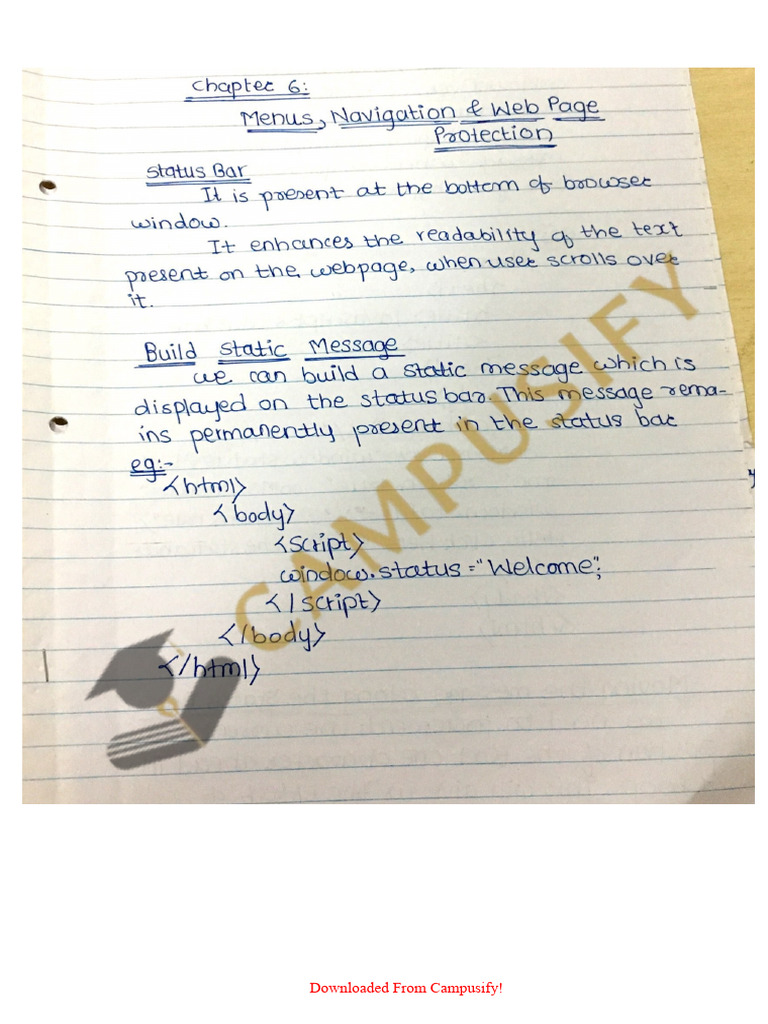 Chapter 6:
Menus, Navigation & Web Page
Protection
Status Bar
It is present at the bottom of browser
window.
It enhances the readability of the text
present on the webpage, when user scrolls over
it.
Build Static Message
we can build a static message which is
displayed on the status bar. This message rema-
ins permanently present in the status bar
eg:-
<html>
<body>
<script>
window.status="Welcome";
</script>
</body>
</html>
CAMPUSIFY
Downloaded From Campusify!